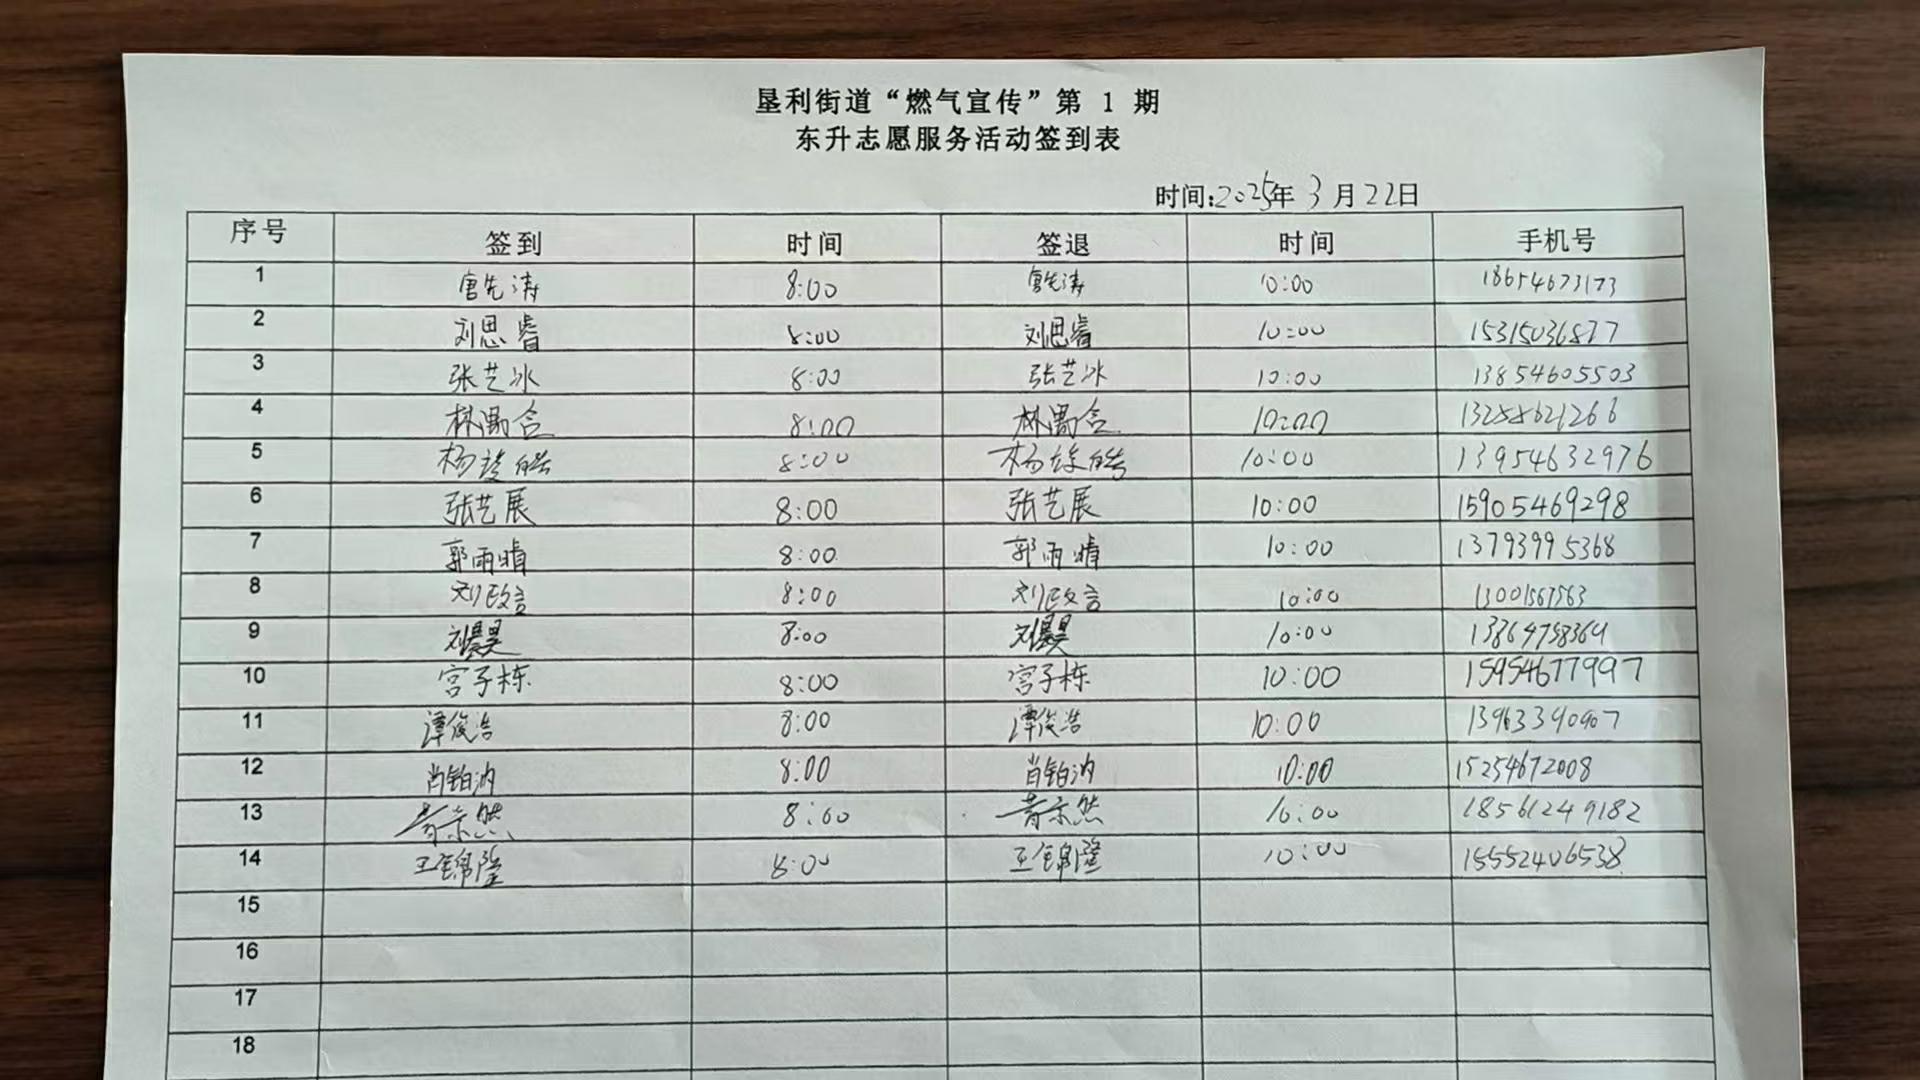 垦利街道“燃气宣传”第 1 期
东升志愿服务活动签到表
时间:2025年 3 月 22日
序号 签到 时间 签退 时间 手机号
1 唐先涛 8:00 唐先涛 10:00 18654673173
2 刘思睿 8:00 刘思睿 10:00 15315036877
3 张艺冰 8:00 张艺冰 10:00 13854605503
4 林禹含 8:00 林禹含 10:00 13258621266
5 杨 皓 8:00 杨 皓 10:00 13954632976
6 张艺展 8:00 张艺展 10:00 15905469298
7 郭雨晴 8:00 郭雨晴 10:00 13793995368
8 刘政言 8:00 刘政言 10:00 13001567563
9 刘 昊 8:00 刘 昊 10:00 13864758364
10 宫子栋 8:00 宫子栋 10:00 15954677997
11 谭俊浩 8:00 谭俊浩 10:00 13963390907
12 肖铂汭 8:00 肖铂汭 10:00 15254672008
13 然 8:00 然 10:00 18561249182
14 王锦隆 8:00 王锦隆 10:00 15552406538
15
16
17
18